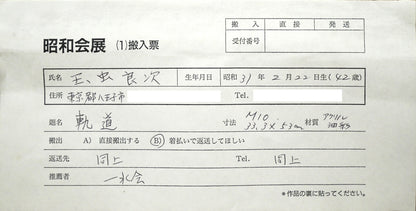 搬入 直接 発送
受付番号
昭和会展 (1)搬入票
氏名 玉虫良次 生年月日 昭和 31年 2月22日生(42歳)
住所 東京都八王子市 Tel.
題名 軌道 寸法 M10 33.3×53cm 材質 アクリル 油彩
搬出 A) 直接搬出する B) 着払いで返送してほしい
返送先 同上 Tel. 同上
推薦者 一水会
*作品の裏に貼ってください。